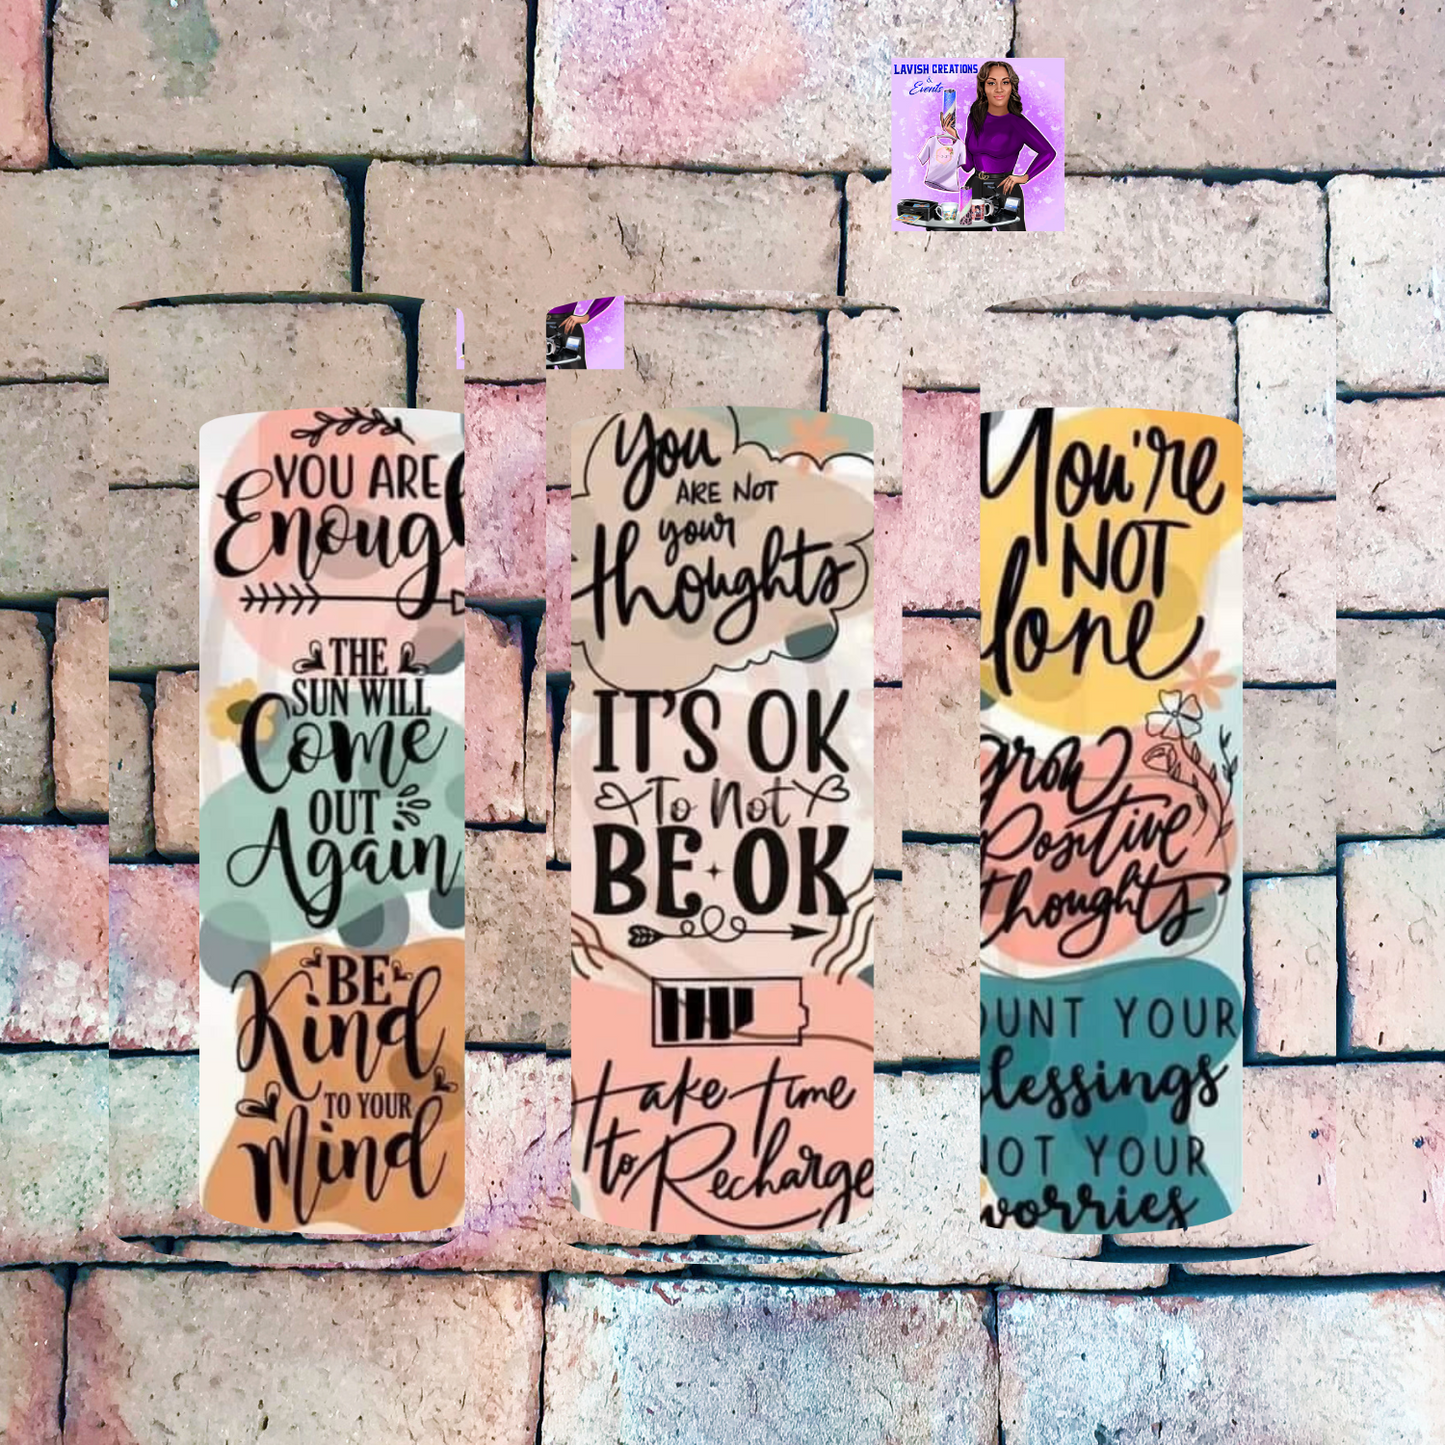 LAVISH CREATIONS
&
Events
YOU ARE
Enough
THE
SUN WILL
Come
OUT
Again
BE
Kind
TO YOUR
Mind
You
ARE NOT
your
thoughts
IT'S OK
To Not
BE OK
take time
to Recharge
You're
NOT
lone
grow
Positive
thoughts
OUNT YOUR
lessings
NOT YOUR
worries